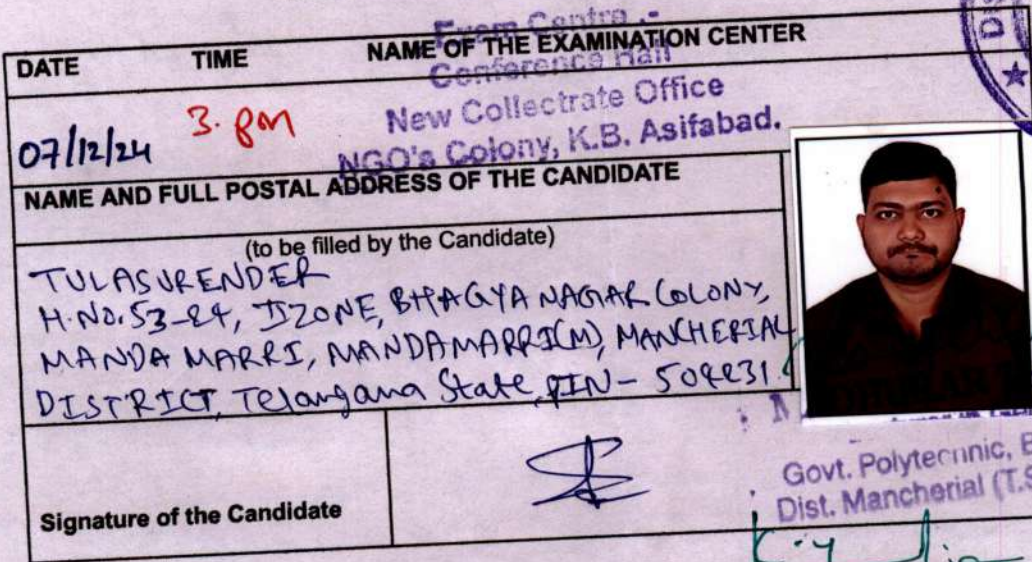 DATE TIME NAME OF THE EXAMINATION CENTER
Exam Centre :-
Conference Hall
07/12/24 3. pm New Collectrate Office
NGO's Colony, K.B. Asifabad.
NAME AND FULL POSTAL ADDRESS OF THE CANDIDATE
(to be filled by the Candidate)
TULASURENDER
H.NO.53-24, IZONE, BHAGYA NAGAR COLONY,
MANDA MARRI, MANDAMARRI(M), MANCHERIAL
DISTRICT, Telangana State, PIN - 504231.
Signature of the Candidate
Govt. Polytechnic, B
Dist. Mancherial (T.S